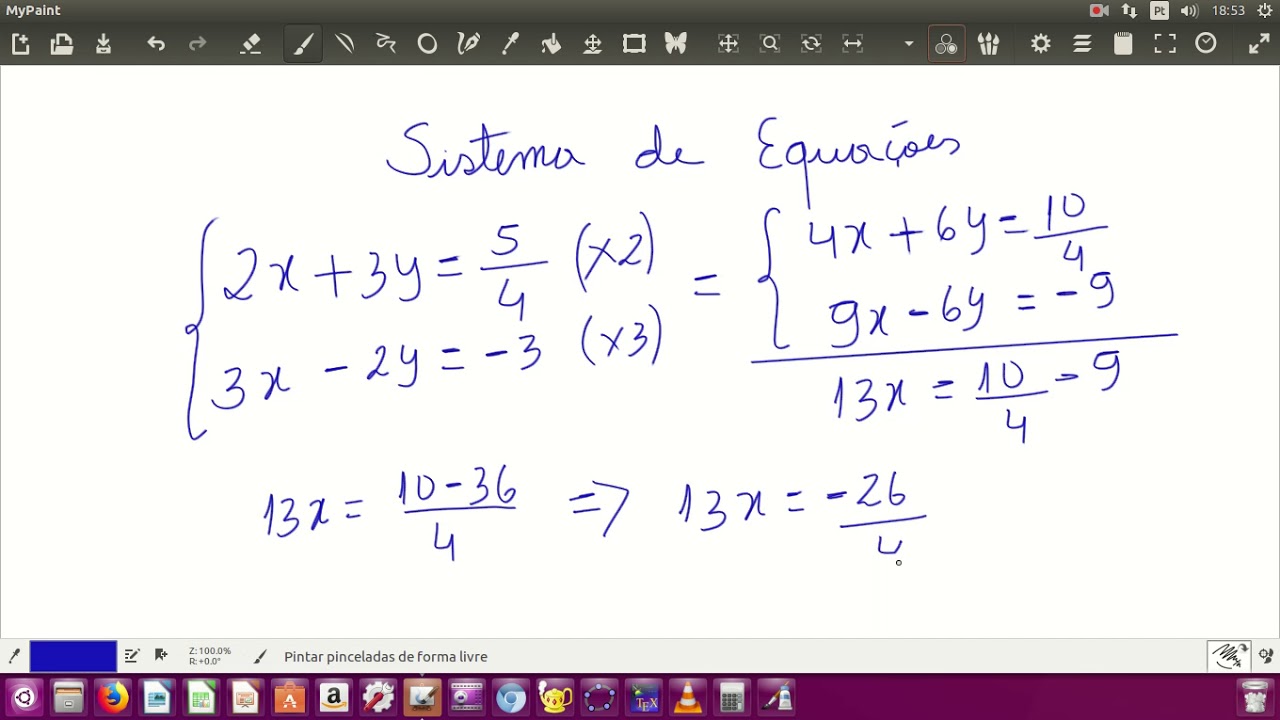 MyPaint
Pt 18:53
Sistema de Equações
2x + 3y = 5/4 (×2) = 4x + 6y = 10/4
3x - 2y = -3 (×3) 9x - 6y = -9
13x = 10/4 - 9
13x = 10-36/4 => 13x = -26/4
Z: 100.0%
R: +0.0°
Pintar pinceladas de forma livre
A a TEX